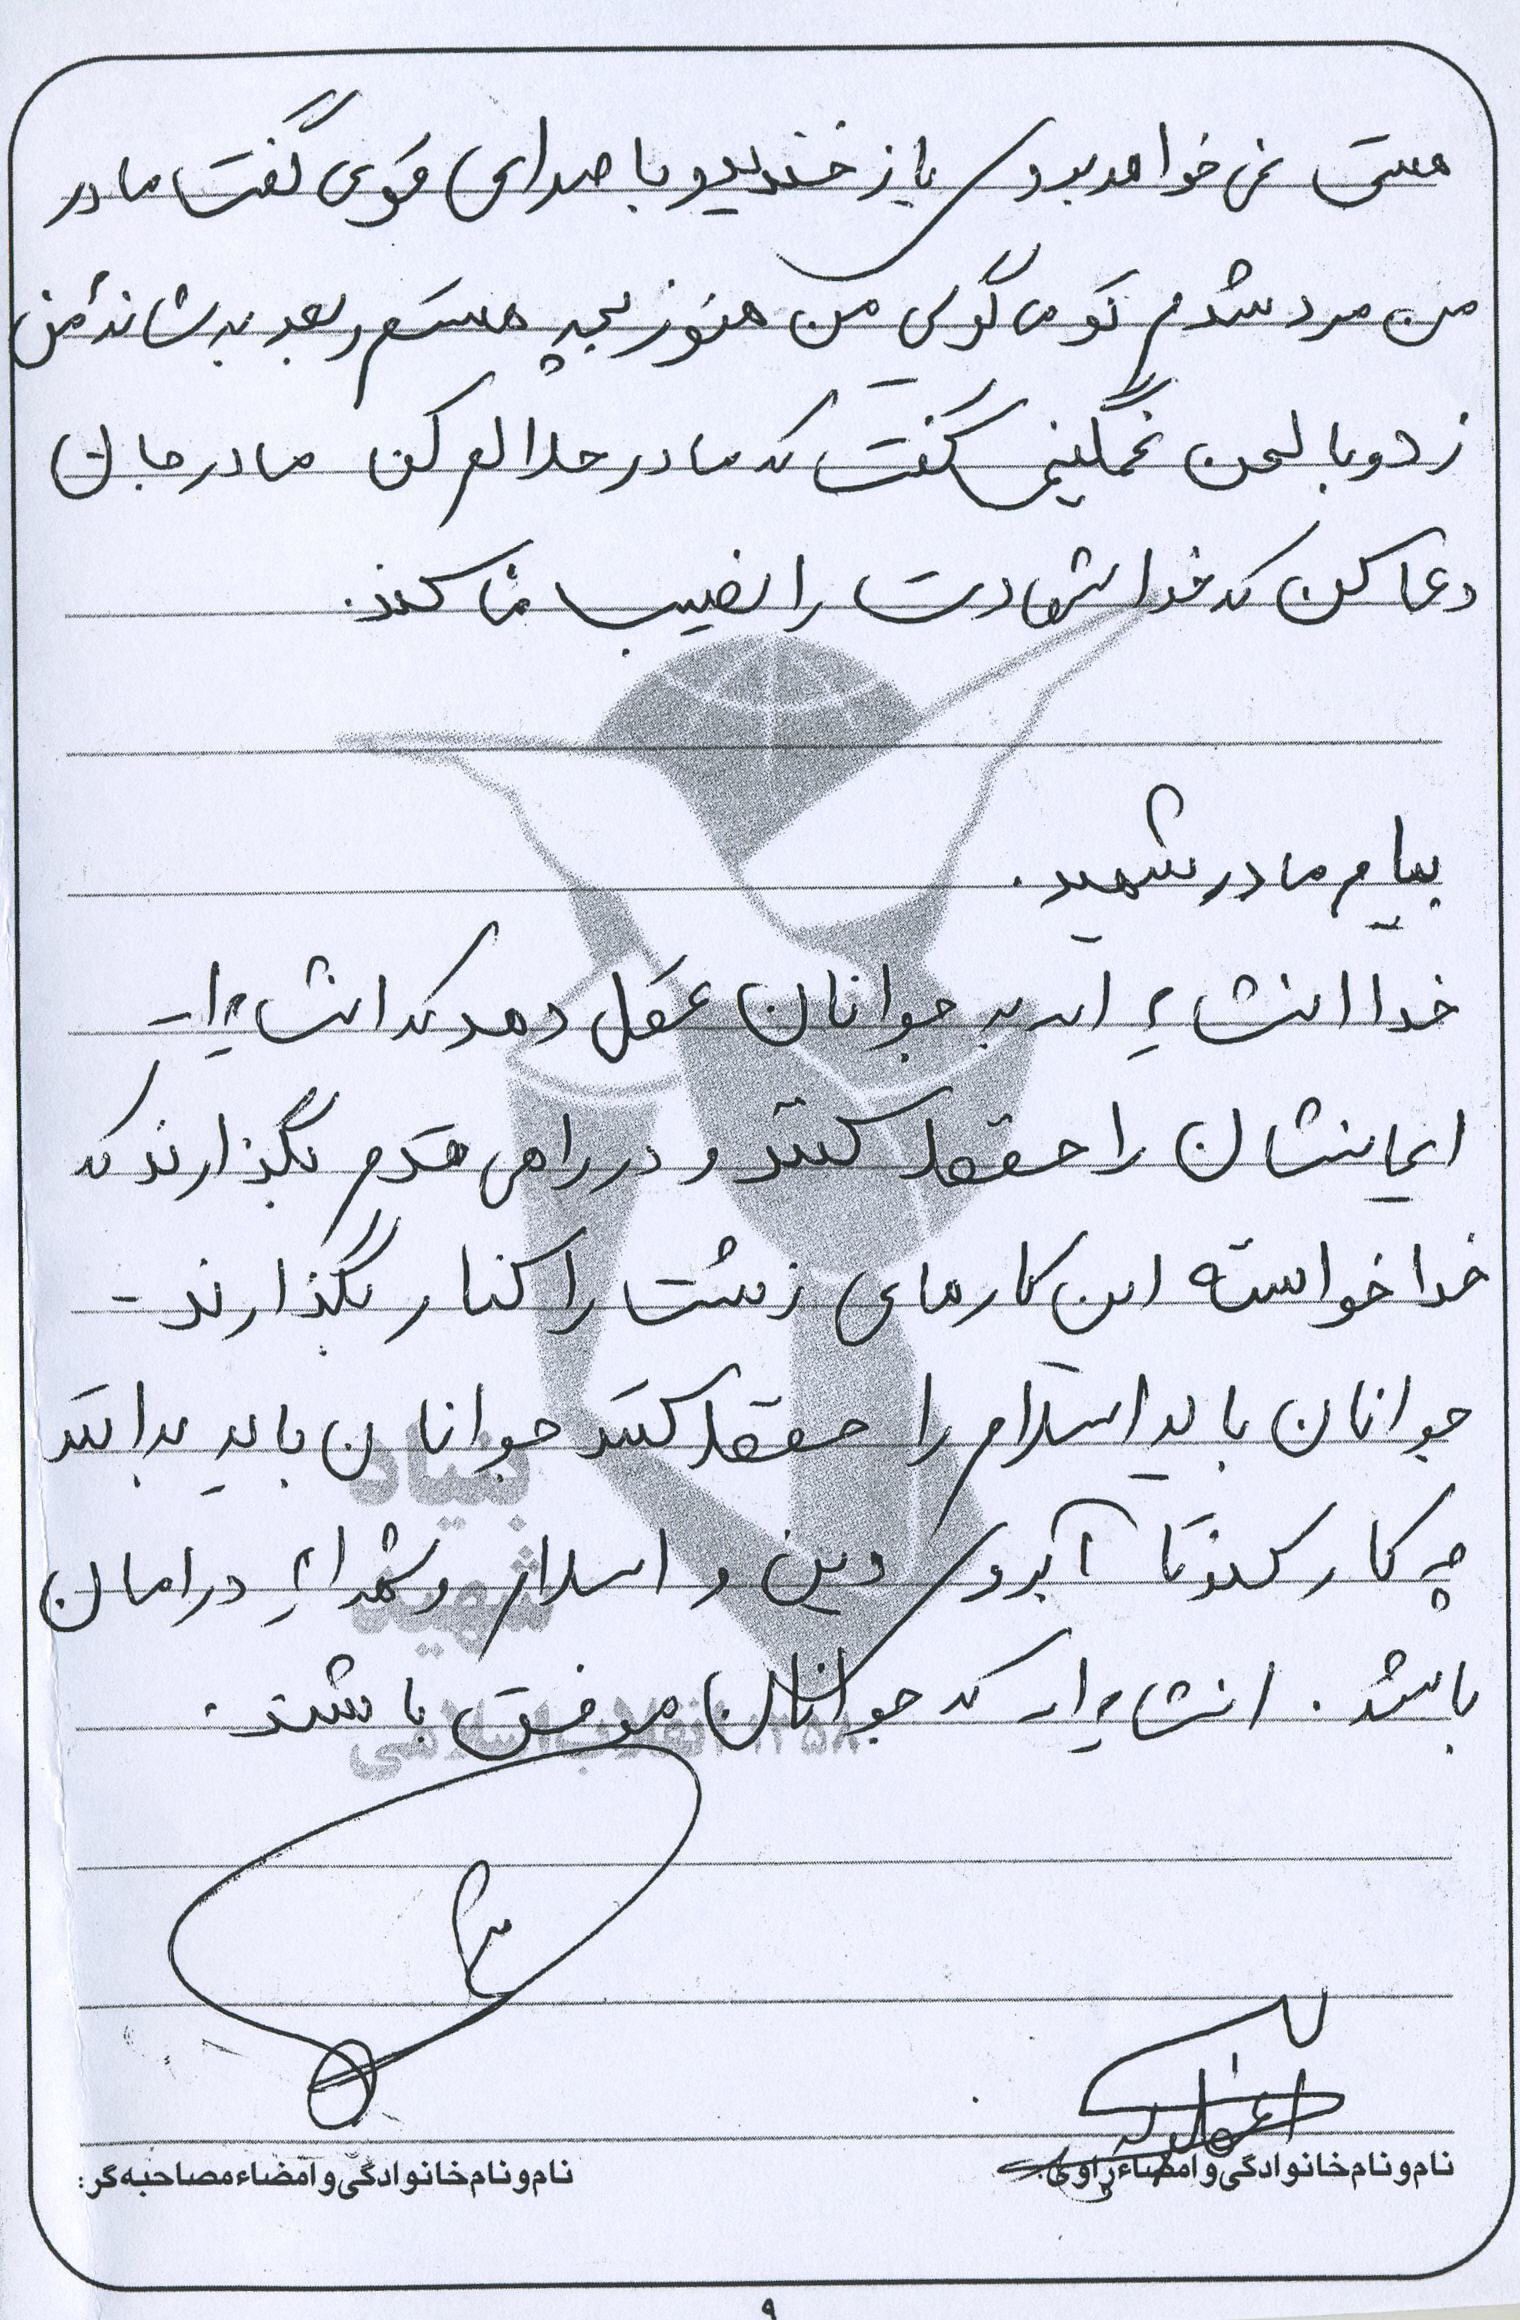 هستی نمی خواهد بروی باز خندید و با صدای قوی گفت مادر
من مرد شدم تو می گوی من هنوز بچه هستم و بعد به شانه من
زد و با لحن غمگینی گفت که مادر حلالم کن مادر جان
دعا کن که خدا شهادت را نصیب ما کند.
پیام مادر شهید.
خدا انشاء اله به جوانان عقل دهد که انشاءا..
ایمانشان را حفظ کنند و در راهی قدم بگذارند که
خدا خواسته این کارهای زشت را کنار بگذارند -
جوانان باید اسلام را حفظ کنند جوانان باید بدانند
چه کار کنند تا آبروی دین و اسلام و شهداء در امان
باشد. انشاءا.. که جوانان موفق باشند.
بنیاد
شهید
انقلاب اسلامی ۱۳۵۸
نام و نام خانوادگی و امضاء راوی:
نام و نام خانوادگی و امضاء مصاحبه گر:
۹